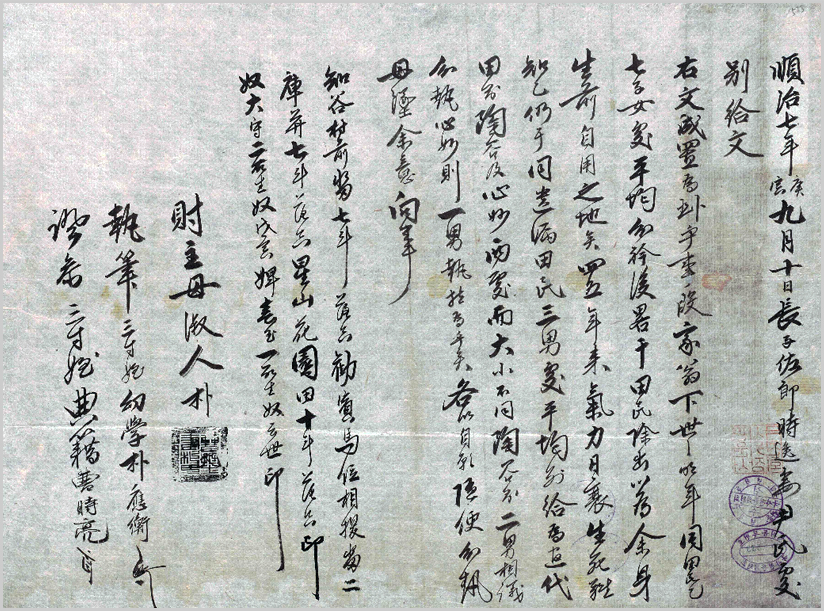 順治七年庚寅九月十日長子佐郎時逸妻尹氏處
別給文
右文成置爲臥乎事段家翁下世明年同田民
七子女處平均分衿後略干田民除出以爲余身
生前自用之地矣四五年來氣力日衰生死難
知乙仍于同遺漏田民三男處平均別給爲遣代
田分陶谷及心妙兩處而大小不同陶谷分二男相議
分執心妙則一男執持爲乎矣各以自願隨便分執
母墜余意向事
知谷村前畓七斗落只勸賓馬位相換畓二
庫幷七斗落只星山花園田十斗落只印
奴大守二所生奴戊 婢 一所生奴 世印
財主母淑人朴
執筆三寸姪幼學朴應衡
證參三寸姪典籍曺時亮